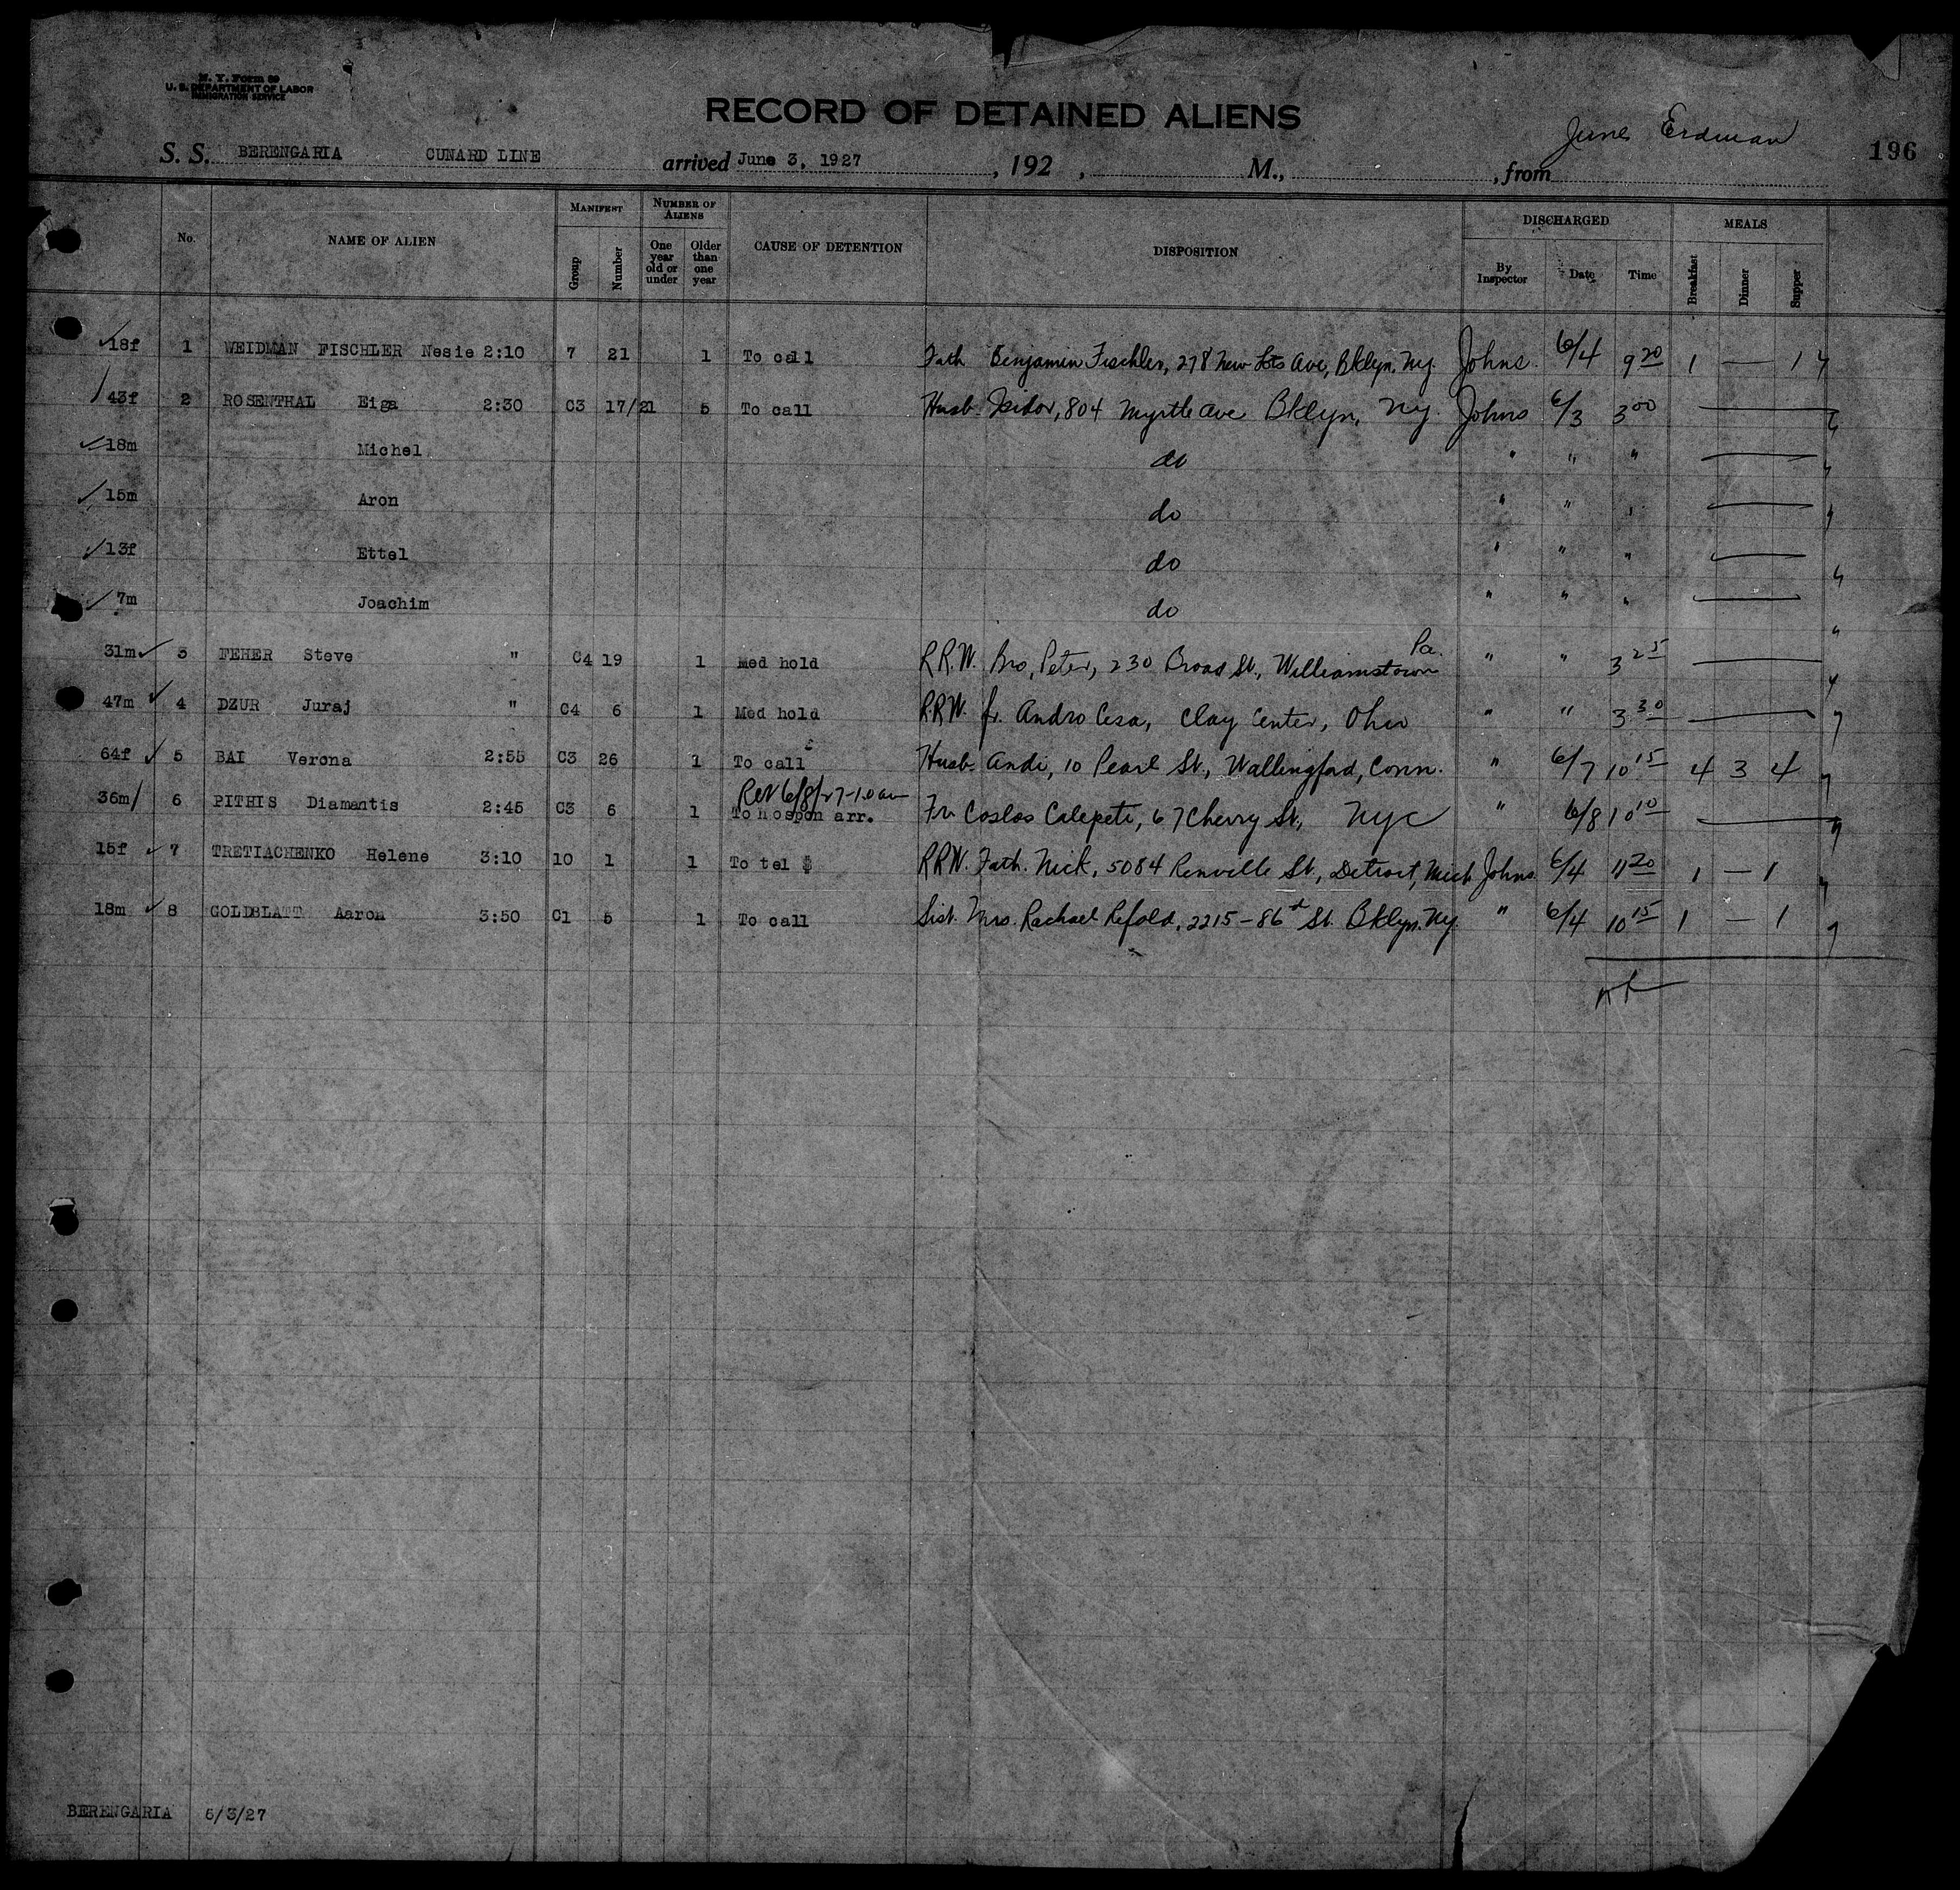 N. Y. Form 89
U. S. DEPARTMENT OF LABOR
IMMIGRATION SERVICE
RECORD OF DETAINED ALIENS
June Erdman
196
S. S. BERENGARIA CUNARD LINE arrived June 3, 1927, 192 , M., , from
No. NAME OF ALIEN MANIFEST NUMBER OF ALIENS CAUSE OF DETENTION DISPOSITION DISCHARGED MEALS
Group Number One year old or under Older than one year By Inspector Date Time Breakfast Dinner Supper
18f 1 WEIDMAN FISCHLER Nesie 2:10 7 21 1 To call Fath Benjamin Fischler, 278 New Lots Ave, Bklyn. Ny. Johns. 6/4 9 20 1 — 1
43f 2 ROSENTHAL Eiga 2:30 C3 17/21 5 To call Husb. Isidor, 804 Myrtle ave Bklyn, Ny. Johns 6/3 3 00 —
18m Michel do " " " —
15m Aron do " " " —
13f Ettel do " " " —
7m Joachim do " " " —
31m 3 FEHER Steve " C4 19 1 Med hold R.R.W. Bro, Peter, 230 Broad St., Williamstown Pa. " " 3 25 —
47m 4 DZUR Juraj " C4 6 1 Med hold R.R.W. fr. Andro Cesa, Clay Center, Ohio " " 3 30 —
64f 5 BAI Verona 2:55 C3 26 1 To call Husb. Andi, 10 Pearl St., Wallingford, Conn. " 6/7 10 15 4 3 4
Rev 6/8/27-10 am
36m 6 PITHIS Diamantis 2:45 C3 6 1 To hosp on arr. Fr. Coslos Calepeti, 67 Cherry St, Nyc " 6/8 10 10 —
15f 7 TRETIACHENKO Helene 3:10 10 1 1 To tel $ R.R.W. Fath. Nick, 5084 Renville St., Detroit, Mich Johns 6/4 11 20 1 — 1
18m 8 GOLDBLATT Aaron 3:50 C1 5 1 To call Sist. Mrs. Rachael Refold, 2215-86 St. Bklyn. Ny. " 6/4 10 15 1 — 1
BERENGARIA 6/3/27